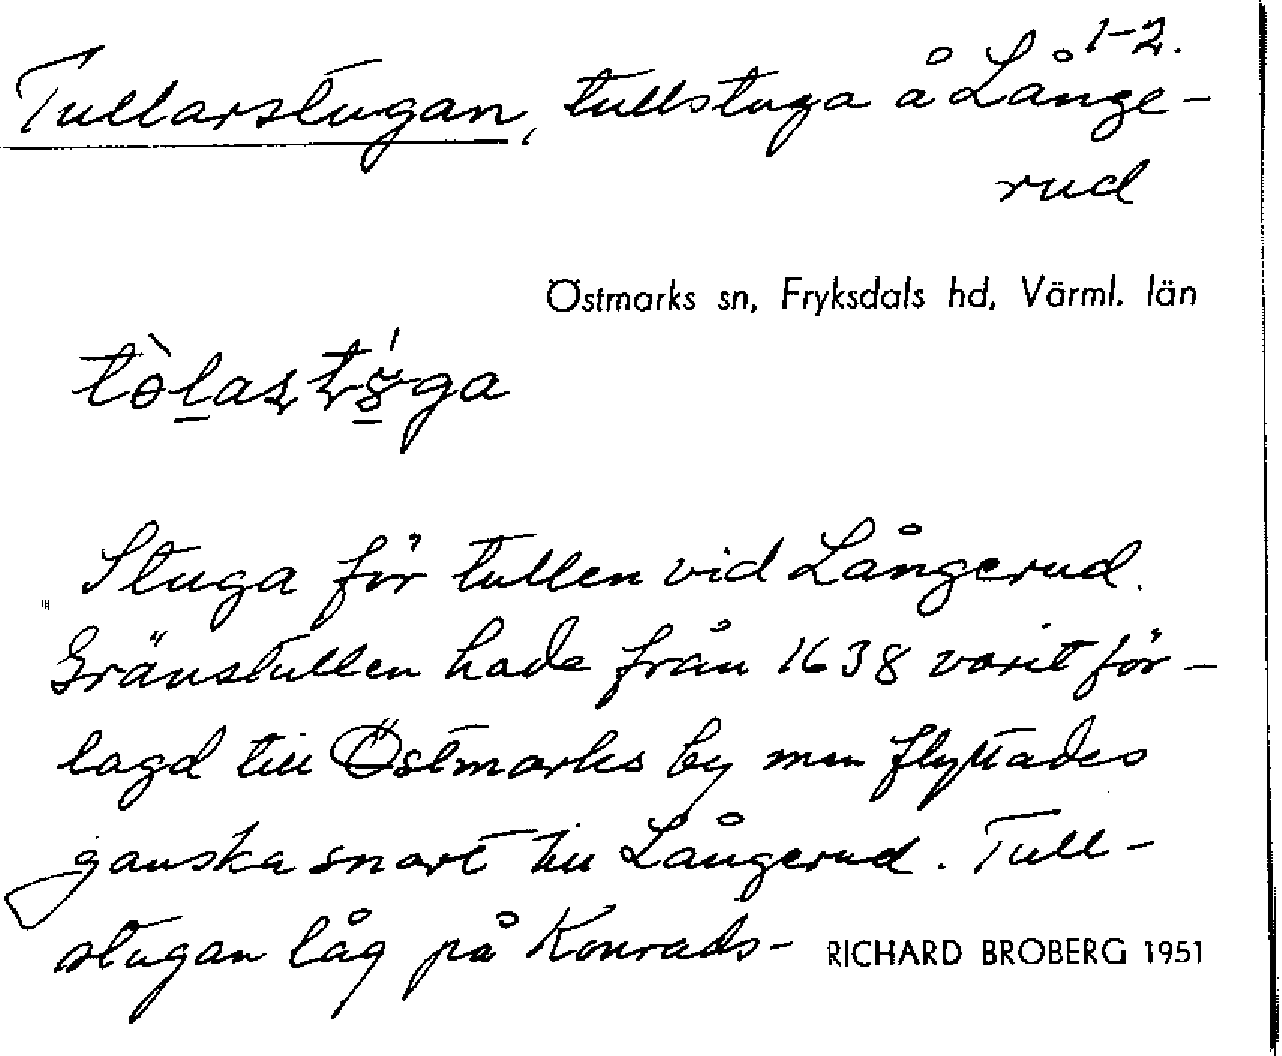 1-2.
Tullarstugan, tullstuga å Långe-
rud
Östmarks sn, Fryksdals hd, Värml. län
Stuga för tullen vid Långerud.
Gränstullen hade från 1638 varit för-
lagd till Östmarks by men flyttades
ganska snart till Långerud. Tull-
stugan låg på Konrads-
RICHARD BROBERG 1951